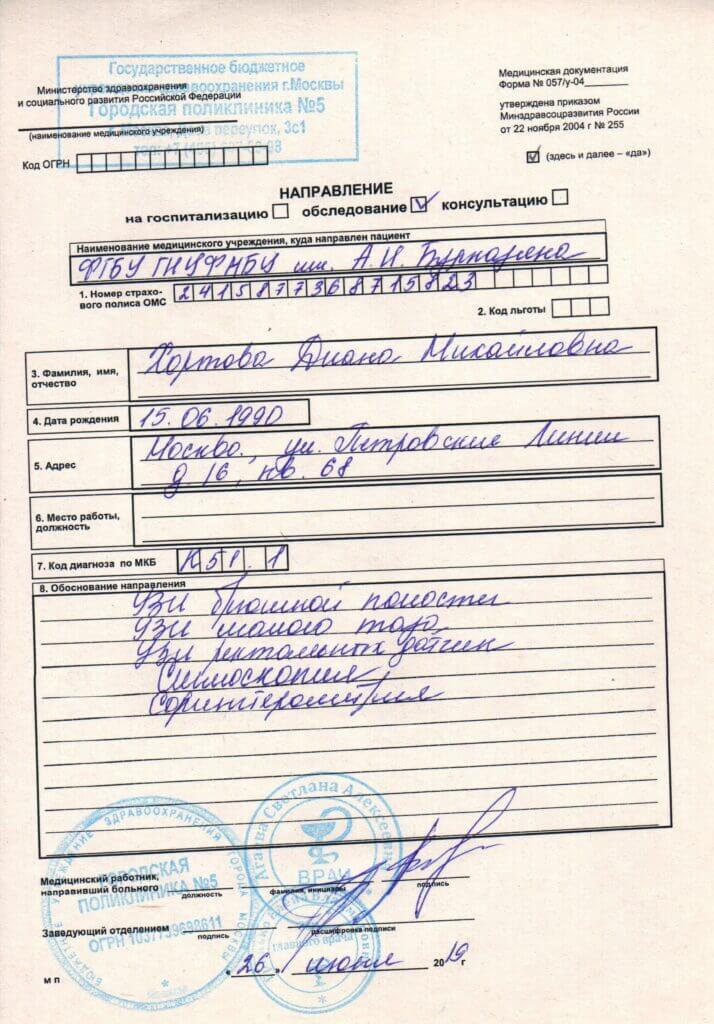 Государственное бюджетное
здравоохранения г.Москвы
Городская поликлиника №5
переулок, 3с1
Министерство здравоохранения
и социального развития Российской Федерации
(наименование медицинского учреждения)
Код ОГРН
Медицинская документация
Форма № 057/у-04
утверждена приказом
Минздравсоцразвития России
от 22 ноября 2004 г № 255
(здесь и далее – «да»)
НАПРАВЛЕНИЕ
на госпитализацию обследование консультацию
Наименование медицинского учреждения, куда направлен пациент
ФГБУ ГНЦ ФМБЦ им. А.И. Бурназяна
1. Номер страхо-
вого полиса ОМС 2415877368715823
2. Код льготы
3. Фамилия, имя,
отчество
Хортова Диана Михайловна
4. Дата рождения 15.06.1990
5. Адрес
Москва, ул. Петровские Линии
д. 16, кв. 68
6. Место работы,
должность
7. Код диагноза по МКБ K51.1
8. Обоснование направления
УЗИ брюшной полости
УЗИ малого таза
УЗИ ректальных датчик
Сигмоскопия
Медицинский работник,
направивший больного
должность
фамилия, инициалы
подпись
Заведующий отделением
подпись
расшифровка подписи
"26" июня 2019 г
м п
ЗДРАВООХРАНЕНИЯ ГОРОДА МОСКВЫ
ГОРОДСКАЯ
ПОЛИКЛИНИКА №5
ОГРН 1037739698611
Светлана Алексеевна
ВРАЧ
главного врача